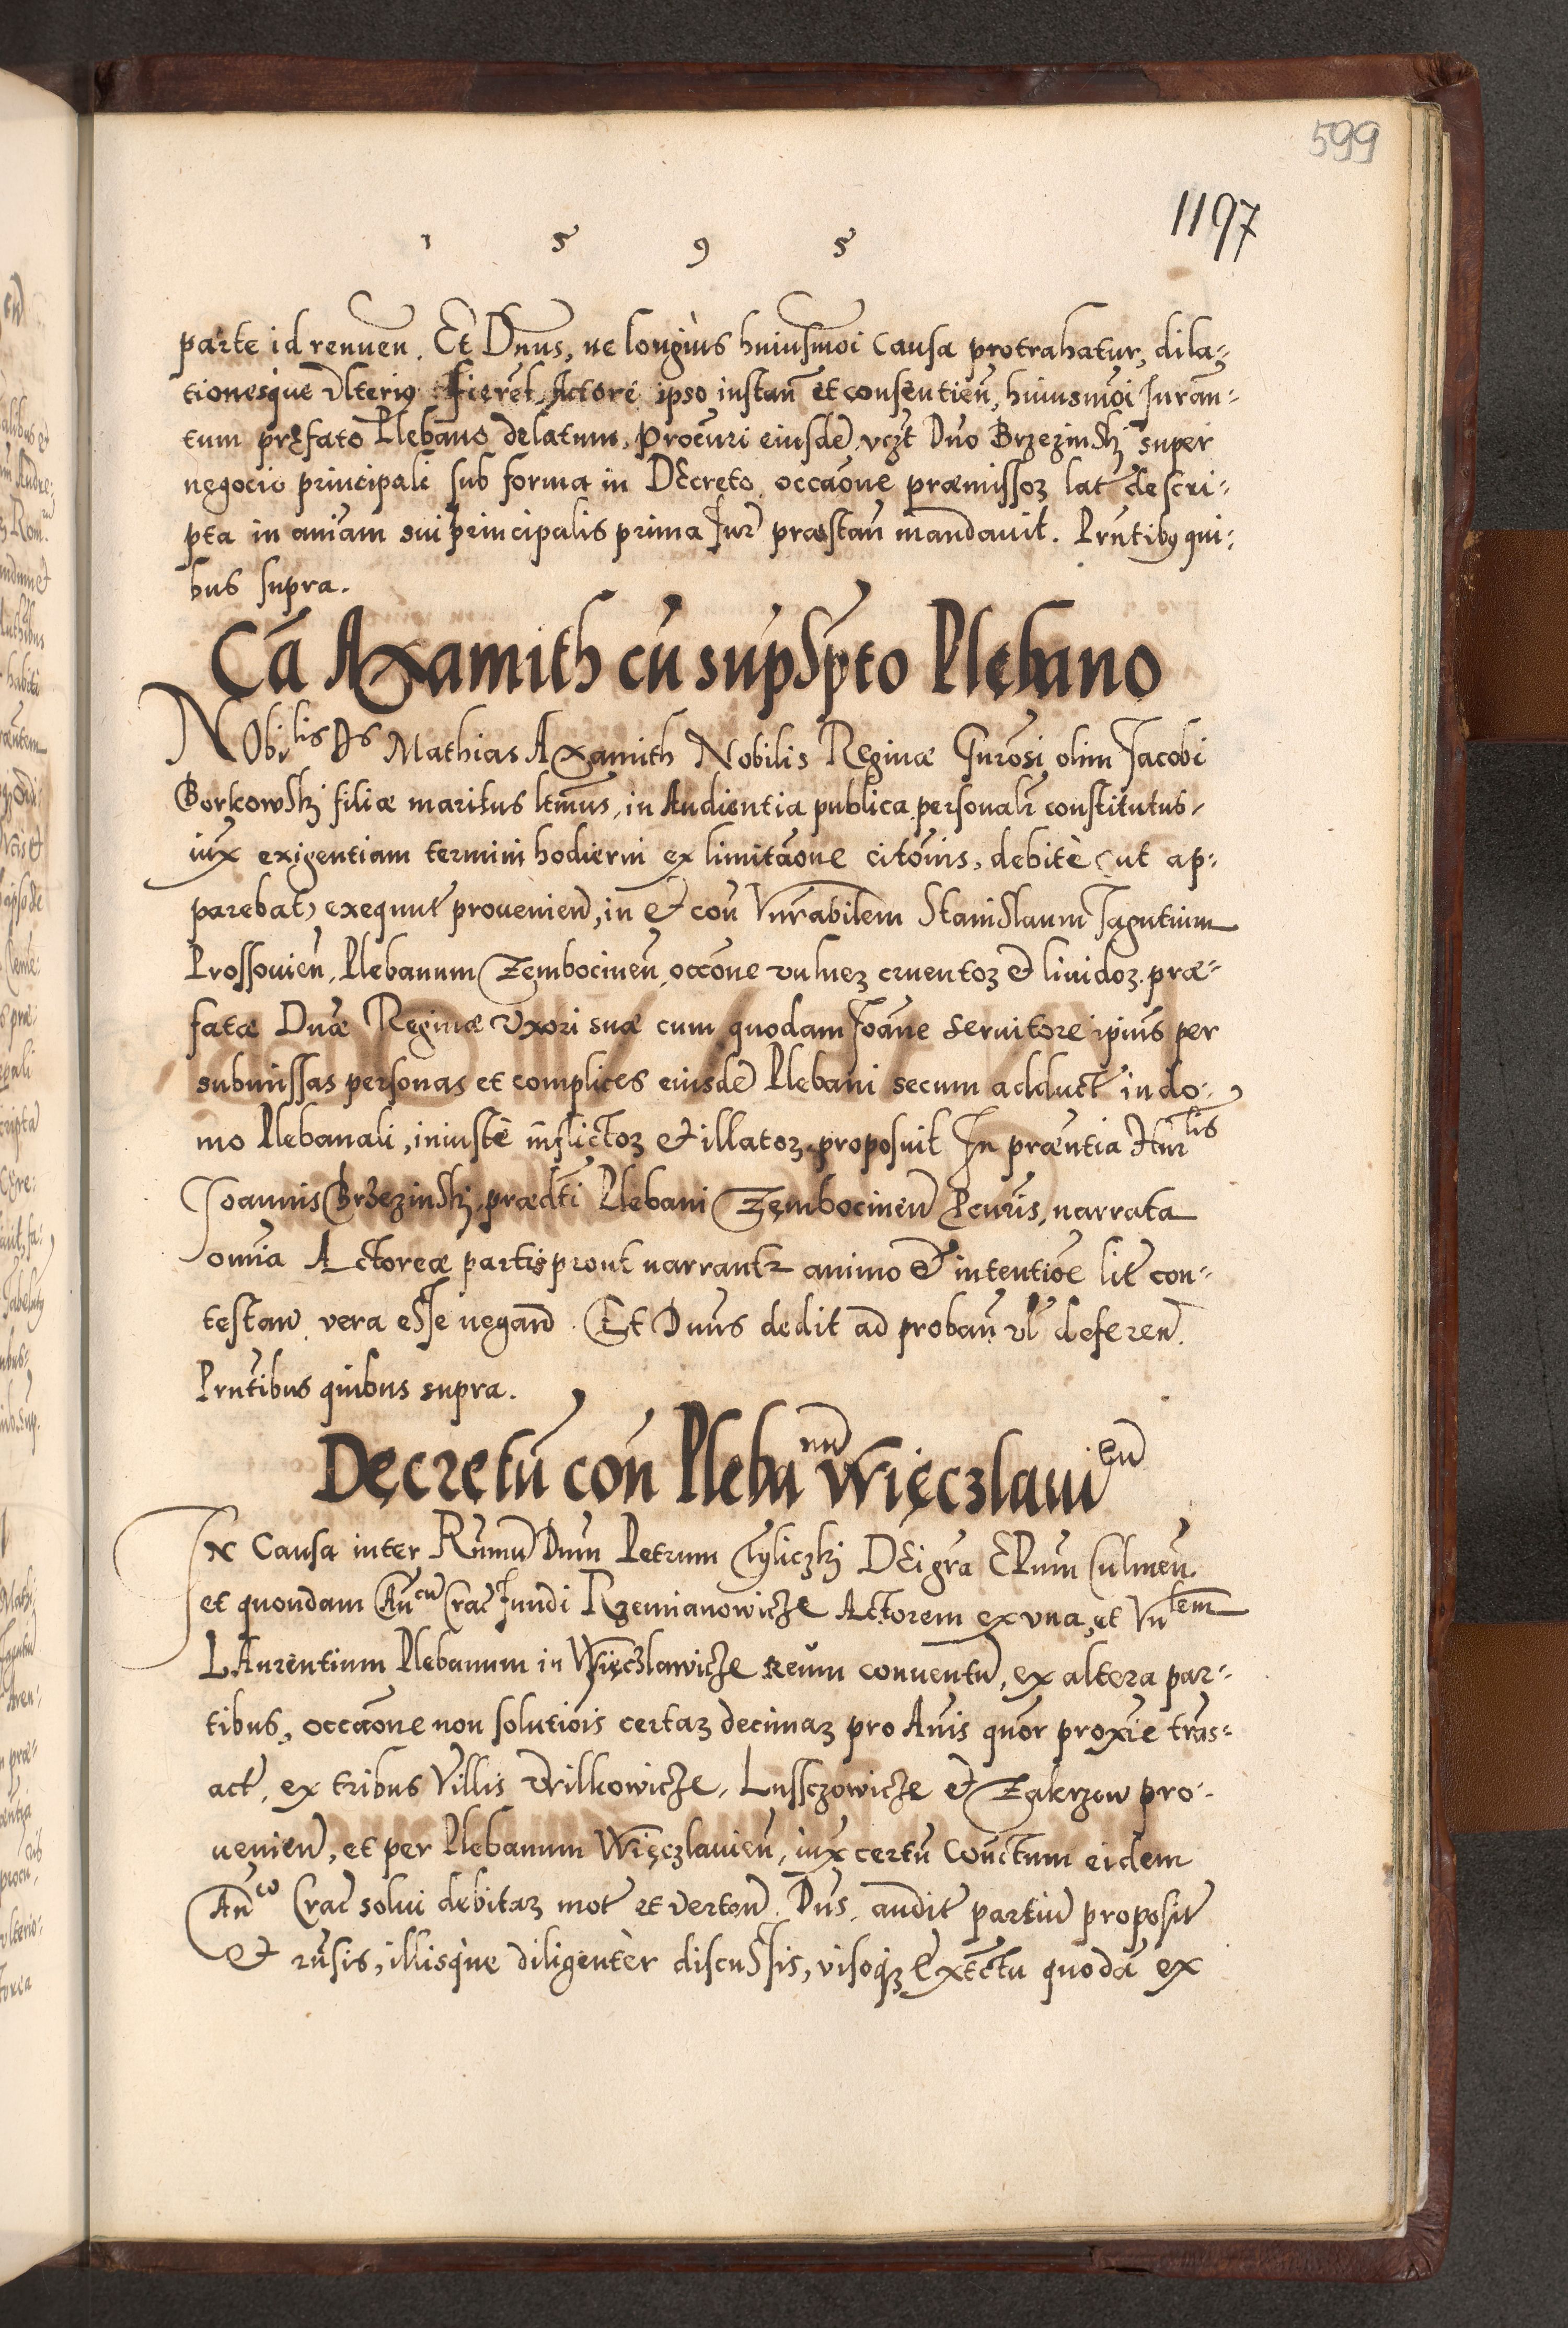 599
1197
1 5 9 5
parte id renuen. Et Dnus, ne longius huiusmoi causa protrahatur, dila-
tionesque ulterius fierent, Actore ipso instan et consentien, huiusmoi Juram-
tum prefato Plebano delatum, Procuri eiusde, vczt Dno Brzezinskj super
negocio principali sub forma in Decreto, occaone præmissoz lat descri-
pta in aniam sui principalis prima Jur præstan mandavit. Prntibus qui-
bus supra.
Ca Axamith cu supSpto Plebano
Nobilis Ds Mathias Axamith Nobilis Reginæ Gnrosi olim Jacobi
Borkowskj filiæ maritus ltmus, in Audientia publica personalr constitutus,
iux exigentiam termini hodierni ex limitaone citonis, debite (ut ap-
parebat) exequut provenien, in et con Vnrabilem Stanislaum Jagutium
Prossovien, Plebanum Zembocinen, occone vulnez cruentoz et lividoz præ-
fatæ Dnæ Reginæ Uxori suæ cum quodam Joane servitore ipius per
submissas personas et complices eiusde Plebani secum adduct in do-
mo Plebanali, iniuste inflictoz et illatoz, proposuit In præntia Hnrlis
Joannis Brzezinskj, prædti Plebani Zembocinen Pcuris, narrata
omia Actoreæ partis prout narrantr animo et intentioe lit con-
testan vera esse negand. Et Dnus dedit ad proban vl deferen.
Prntibus quibus supra.
Decretu con Plebanu Więczlavien
In Causa inter Rumu Dnm Petrum Tyliczkj DEi gra EPum Culmen
et quondam Ancu Crac fundi Rzemianowicze Actorem ex una, et Vnlem
LAurentium Plebanum in Więczlawicze reum conventu, ex altera par-
tibus, occaone non solutiois certaz decimaz pro Anis quor proxie tras-
act, ex tribus Villis Wilkowicze, Lussczowicze et Zakrzow pro-
venien, et per Plebanum Więczlavien, iux certu Conctum eidem
Anco Crac solui debitaz mot et verten. Dns, audit partiu proposit
et rusis, illisque diligenter discussis, visoqz Extctu quoda ex